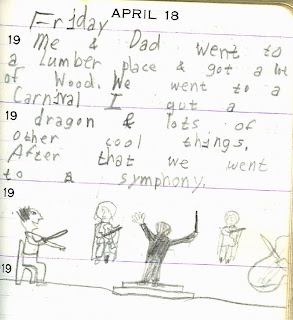 APRIL 18
Friday
19 Me & Dad went to
a Lumber place & got a lot
of Wood. We went to a
Carnival I gut a
19 dragon & lots of
other cool things.
After that we went
to a symphony.
19
19